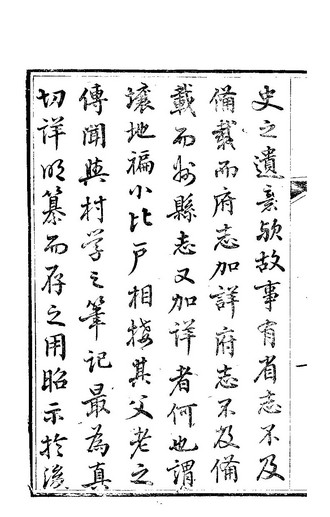 史之遺意歟故事有省志不及
備載而府志加詳府志不及備
載而州縣志又加詳者何也謂
壤地褊小比戶相接其父老之
傳聞與村學之筆記最為真
切詳明纂而存之用昭示於後